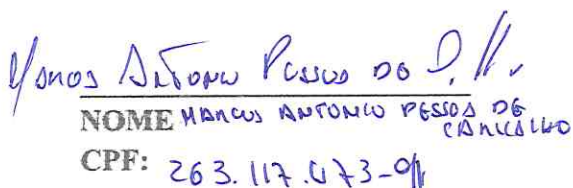 Marcos Antonio Pessoa de
NOME MARCOS ANTONIO PESSOA DE
CARVALHO
CPF: 263.117.473-91